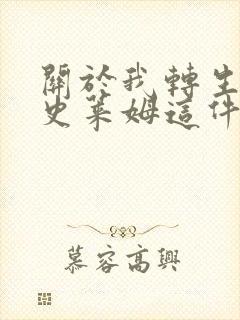 關於我轉生
史萊姆這件
慕容高興